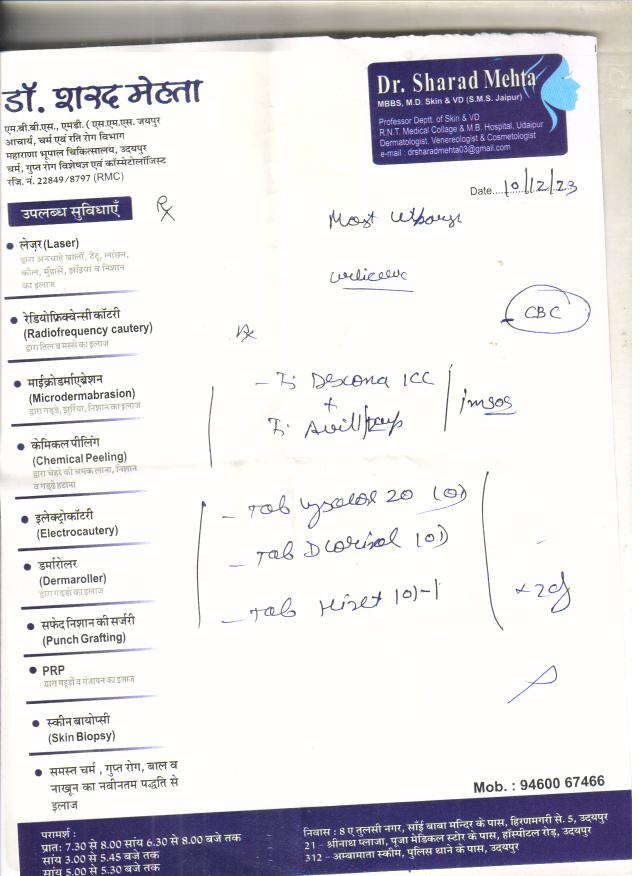 डॉ. शरद मेहता
एम.बी.बी.एस., एमडी. ( एस.एम.एस. जयपुर
आचार्य, चर्म एवं रति रोग विभाग
महाराणा भूपाल चिकित्सालय, उदयपुर
चर्म, गुप्त रोग विशेषज्ञ एवं कॉस्मेटोलॉजिस्ट
रजि. नं. 22849/8797 (RMC)
Dr. Sharad Mehta
MBBS, M.D. Skin & VD (S.M.S. Jaipur)
Professor Deptt. of Skin & VD
R.N.T. Medical Collage & M.B. Hospital, Udaipur
Dermatologist, Venereologist & Cosmetologist
e-mail : drsharadmehta03@gmail.com
Date....10/12/23
उपलब्ध सुविधाएँ
लेज़र (Laser)
द्वारा अनचाहे बालों, टैटू, लांछन,
कील, मुँहासे, झाँइयां व निशान
का इलाज
रेडियोफ्रिक्वेन्सी कॉटरी
(Radiofrequency cautery)
द्वारा तिल व मस्से का इलाज
माईक्रोडर्माएब्रेशन
(Microdermabrasion)
द्वारा गड्डे, झुर्रिया, निशान का इलाज
केमिकल पीलिंग
(Chemical Peeling)
द्वारा चेहरे की चमक लाना, निशान
व गड्डे हटाना
इलेक्ट्रोकॉटरी
(Electrocautery)
डर्मारोलर
(Dermaroller)
द्वारा गड्डों का इलाज
सफेद निशान की सर्जरी
(Punch Grafting)
PRP
द्वारा गड्डों व गंजापन का इलाज
स्कीन बायोप्सी
(Skin Biopsy)
समस्त चर्म , गुप्त रोग, बाल व
नाखून का नवीनतम पद्धति से
इलाज
Rx
CBC
Rx
- I: Dexona 1CC
+
I: Avil
imsos
- Tab 20 (0)
- Tab (0)
- Tab
Mob. : 94600 67466
परामर्श :
प्रातः 7.30 से 8.00 सांय 6.30 से 8.00 बजे तक
सांय 3.00 से 5.45 बजे तक
सांय 5.00 से 5.30 बजे तक
निवास : 8 ए तुलसी नगर, साँई बाबा मन्दिर के पास, हिरणमगरी से. 5, उदयपुर
21 – श्रीनाथ प्लाजा, पूजा मेडिकल स्टोर के पास, हॉस्पीटल रोड़, उदयपुर
312 – अम्बामाता स्कीम, पुलिस थाने के पास, उदयपुर